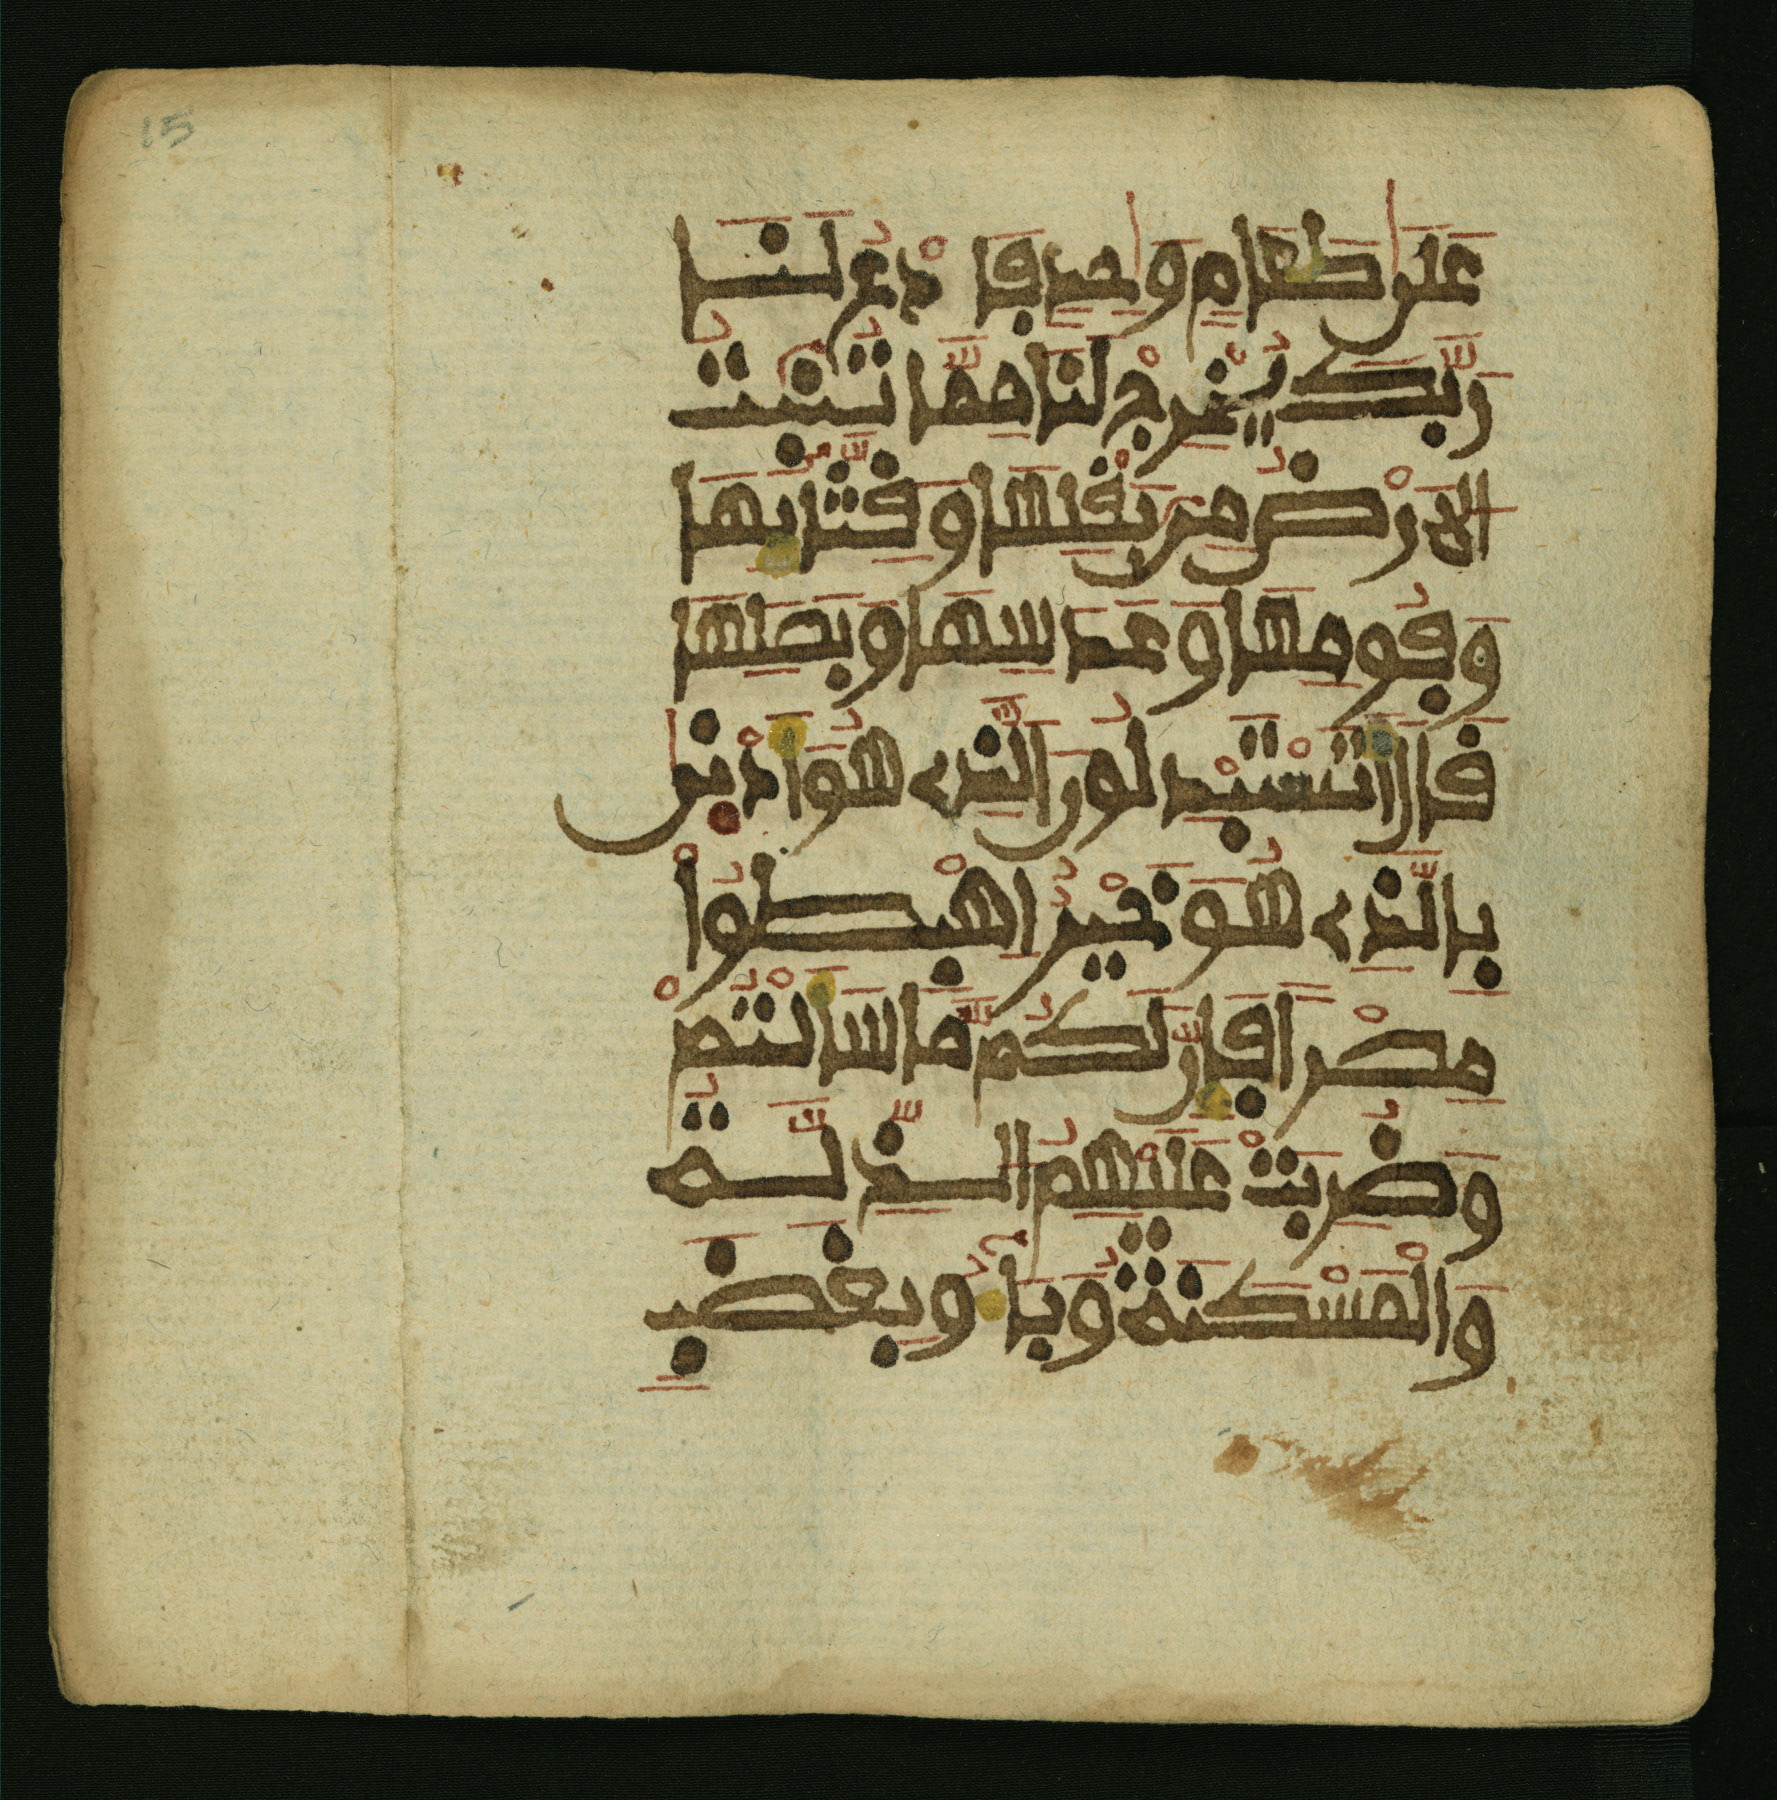 15
عَلَىٰ طَعَامٍ وَٰحِدٍ فَادْعُ لَنَا
رَبَّكَ يُخْرِجْ لَنَا مِمَّا تُنۢبِتُ
الَارْضُ مِنۢ بَقْلِهَا وَقِثَّآئِهَا
وَفُومِهَا وَعَدَسِهَا وَبَصَلِهَا
قَالَ أَتَسْتَبْدِلُونَ الَّذِے هُوَ أَدْنَىٰ
بِالَّذِے هُوَ خَيْرٌ اهْبِطُواْ
مِصْراً فَإِنَّ لَكُم مَّا سَأَلْتُمْ
وَضُرِبَتْ عَلَيْهِمُ الذِّلَّةُ
وَالْمَسْكَنَةُ وَبَآءُو بِغَضَبٍ